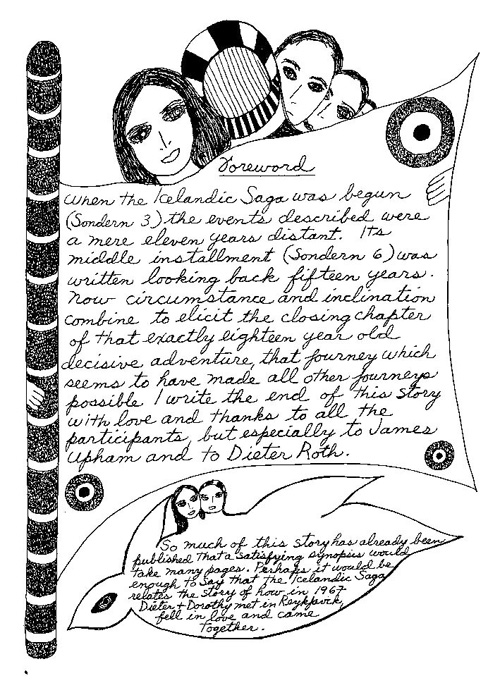 Foreword
When the Icelandic Saga was begun
(Sondern 3) the events described were
a mere eleven years distant. Its
middle installment (Sondern 6) was
written looking back fifteen years.
Now circumstance and inclination
combine to elicit the closing chapter
of that exactly eighteen year old
decisive adventure, that journey which
seems to have made all other journeys
possible. I write the end of this story
with love and thanks to all the
participants, but especially to James
Upham and to Dieter Roth.
So much of this story has already been
published that a satisfying synopsis would
take many pages. Perhaps it would be
enough to say that the Icelandic Saga
relates the story of how in 1967
Dieter + Dorothy met in Reykjavik,
fell in love and came
together.